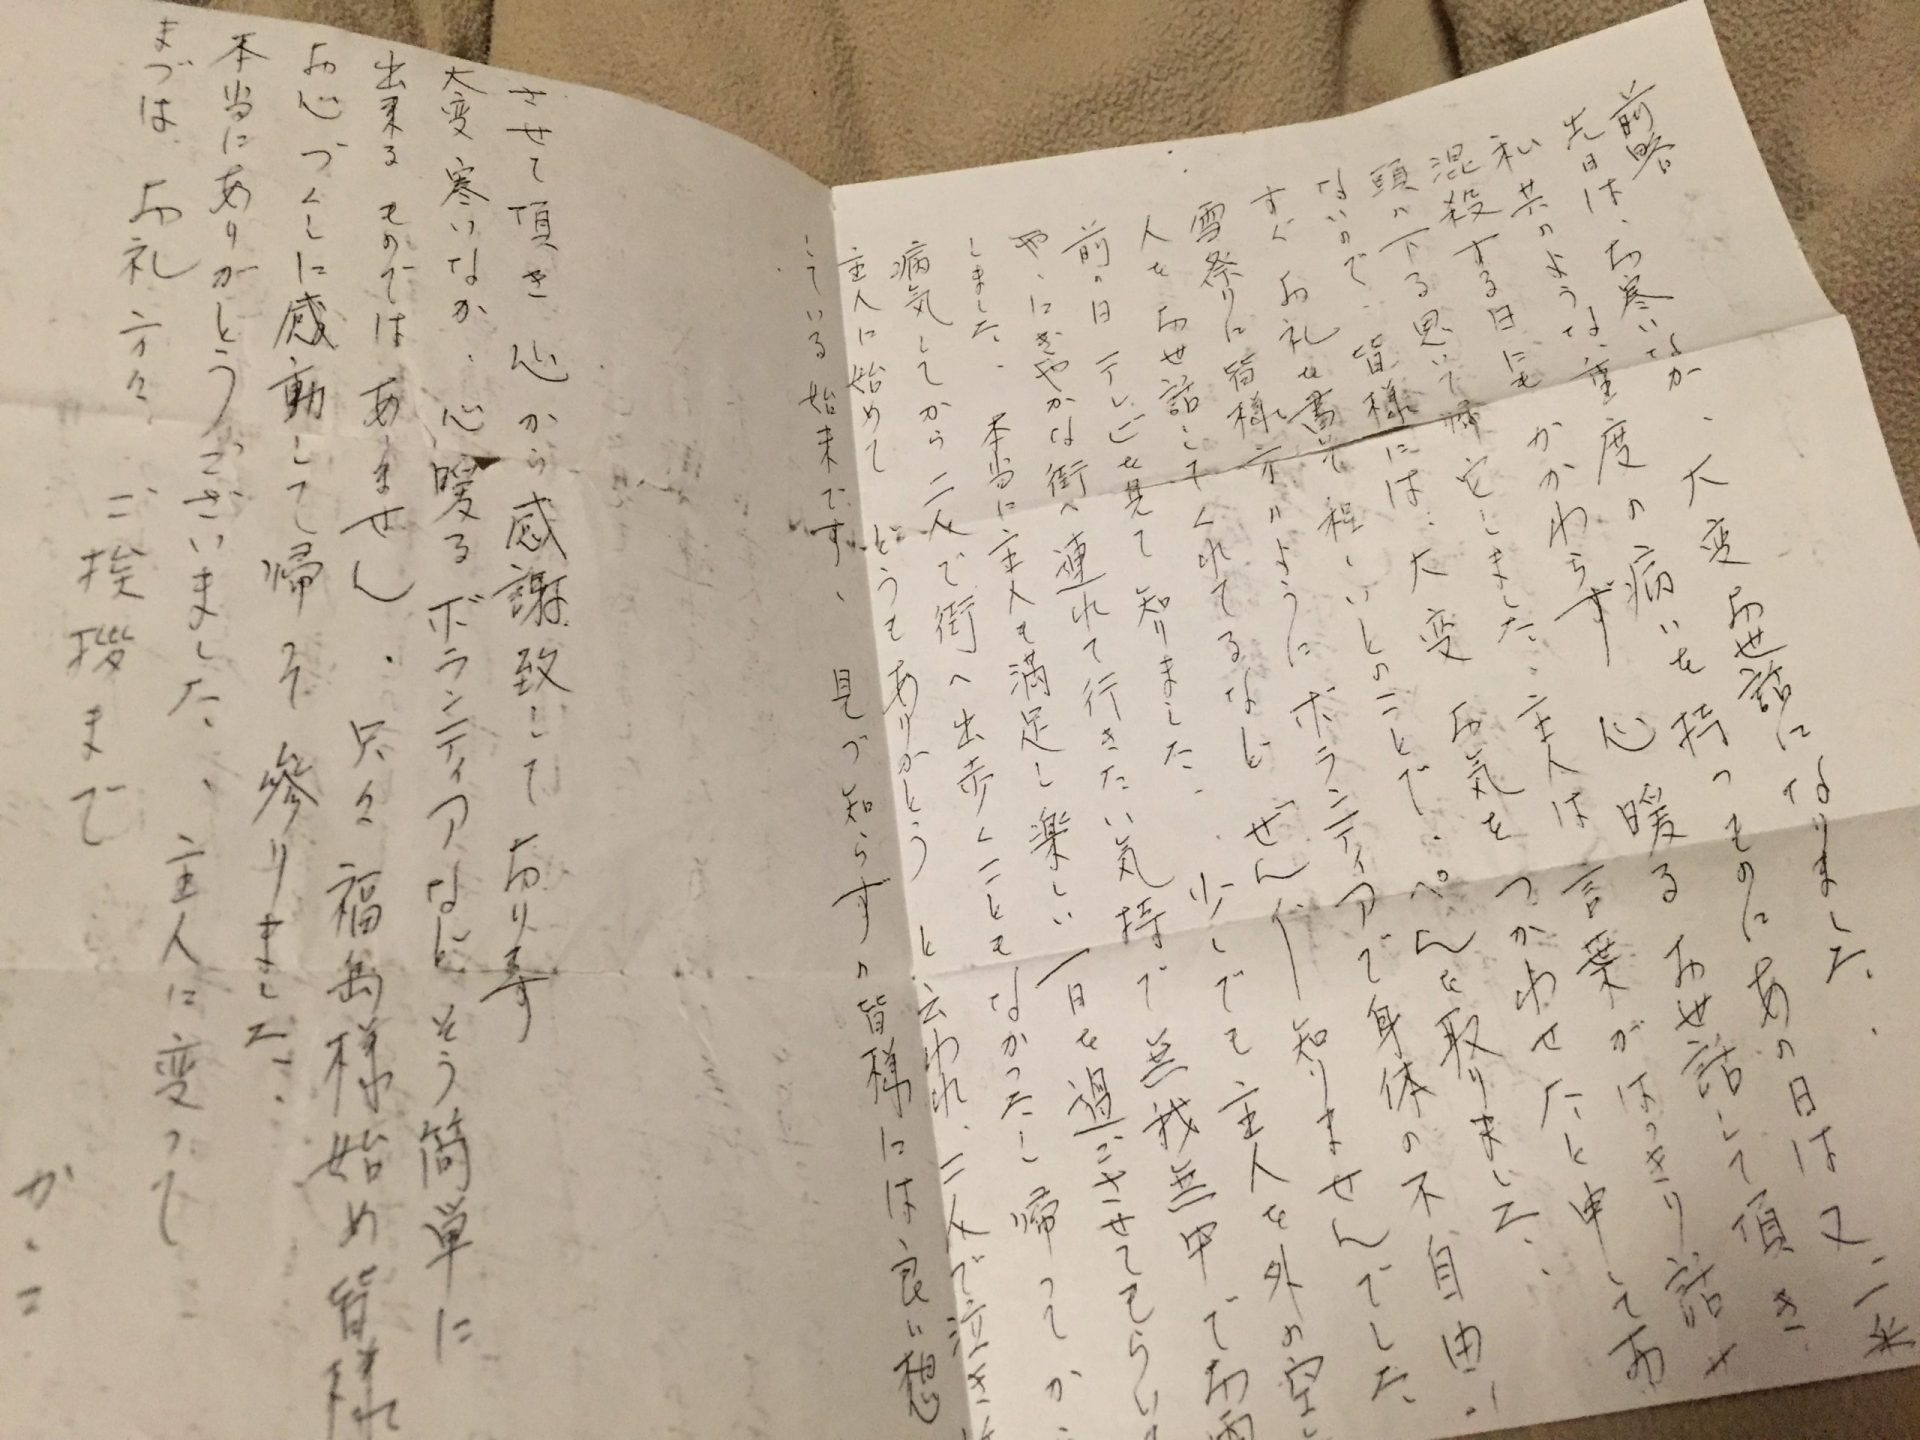 前略
先日は、お寒いなか、大変お世話になりました。
私共のような重度の病いを持つものにあの日は又、一米
混殺する日にもかかわらず心暖るお世話して頂き
頭の下る思いで帰宅しました。主人は言葉がはっきり話せ
ないので、皆様には大変お気をつかわせたと申してお
すぐお礼を書いて程しいとのことで、ぺんを取りました、
雪祭りに皆様方のようにボランティアで身体の不自由
人をお世話してくれてるなとぜんぜん知りませんでした
前の日テレビを見て知りました、少しでも主人を外の空
や、にぎやかな街へ連れて行きたい気持で無我無中でお
しました、本当に主人も満足し楽しい一日を過ごさせてもらい
病気してから二人で街へ出歩くこともなかったし帰ってか
主人に始めてどうもありがとうと云われ、二人で泣き
している始末です、見づ知らずの皆様には良い想
させて頂き心から感謝致しております
大変寒いなか、心暖るボランティアなどそう簡単に
出来るものではありません、只々福島様始め皆様
お心づくしに感動して帰って参りました、
本当にありがとうございました、主人に変って
まづは、お礼方々ご挨拶まで
かしこ